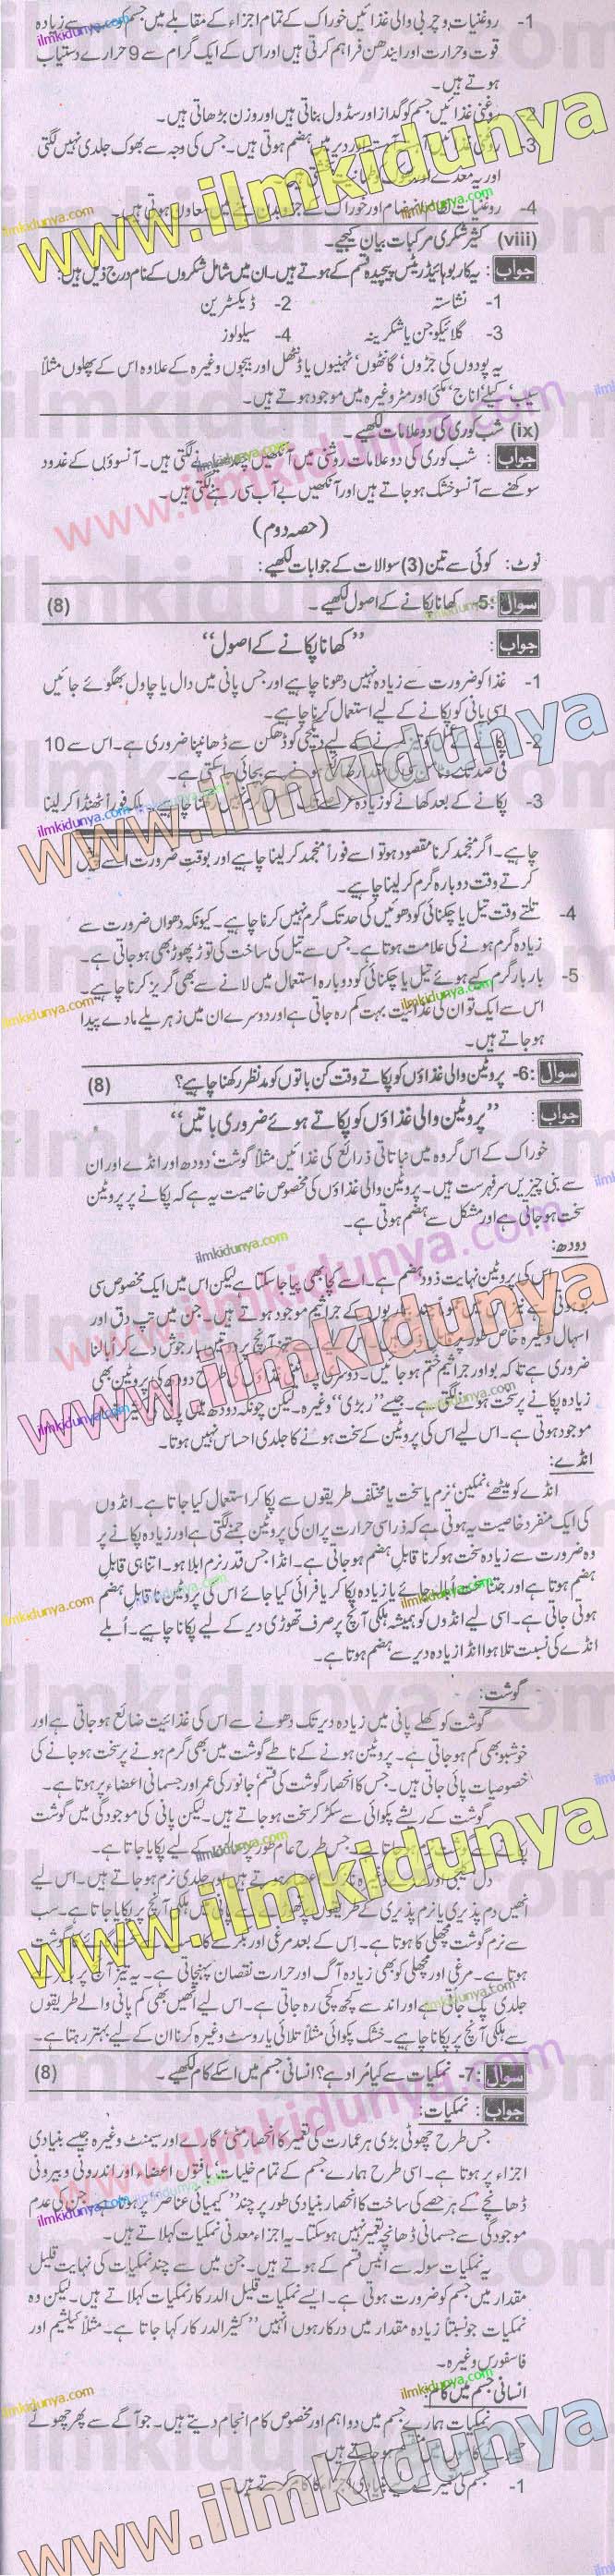 1- روغنیات و چربی والی غذائیں خوراک کے تمام اجزاء کے مقابلے میں جسم سے زیادہ
قوت و حرارت اور ایندھن فراہم کرتی ہیں اور اس کے ایک گرام سے 9 حرارے دستیاب
ہوتے ہیں۔
2- روغنی غذائیں جسم کو گداز اور سڈول بناتی ہیں اور وزن بڑھاتی ہیں۔
3- روغنی غذائیں اور دیر میں ہضم ہوتی ہیں۔ جس کی وجہ سے بھوک جلدی نہیں لگتی
اور یہ معدے
4- روغنیات اور خوراک کے میں معاون ہوتی ہیں۔
(viii) کثیر شکری مرکبات بیان کیجیے۔
جواب: یہ کاربوہائیڈریٹس پیچیدہ قسم کے ہوتے ہیں۔ ان میں شامل شکروں کے نام درج ذیل ہیں:
1- نشاستہ 2- ڈیکسٹرین
3- گلائیکوجن یا شکرینہ 4- سیلولوز
یہ پودوں کی جڑوں، گانٹھوں، ٹہنیوں یا ڈنٹھل اور بیجوں وغیرہ کے علاوہ اس کے پھلوں مثلاً
سیب، کیلے، اناج، مکئی اور مٹر وغیرہ میں موجود ہوتے ہیں۔
(ix) شب کوری کی دو علامات لکھیے۔
جواب: شب کوری کی دو علامات روشنی میں آنکھیں لگتی ہیں۔ آنسوؤں کے غدود
سوکھنے سے آنسو خشک ہو جاتے ہیں اور آنکھیں بے آب سی رہنے لگتی ہیں۔
(حصہ دوم)
نوٹ: کوئی سے تین (3) سوالات کے جوابات لکھیے:
سوال :5- کھانا پکانے کے اصول لکھیے۔ (8)
جواب: ”کھانا پکانے کے اصول“
1- غذا کو ضرورت سے زیادہ نہیں دھونا چاہیے اور جس پانی میں دال یا چاول بھگوئے جائیں
اسی پانی کو پکانے کے لیے استعمال کرنا چاہیے۔
2- پکانے کے کے لیے دیگچی کو ڈھکن سے ڈھانپنا ضروری ہے۔ اس سے 10
فی صد تک سے بچائی جا سکتی ہے۔
3- پکانے کے بعد کھانے کو زیادہ گرم نہیں رکھنا چاہیے۔ بلکہ فوراً ٹھنڈا کر لینا
چاہیے۔ اگر منجمد کرنا مقصود ہو تو اسے فوراً منجمد کر لینا چاہیے اور بوقت ضرورت اسے پیش
کرتے وقت دوبارہ گرم کر لینا چاہیے۔
4- تلتے وقت تیل یا چکنائی کو دھوئیں کی حد تک گرم نہیں کرنا چاہیے۔ کیونکہ دھواں ضرورت سے
زیادہ گرم ہونے کی علامت ہوتا ہے۔ جس سے تیل کی ساخت کی توڑ پھوڑ بھی ہو جاتی ہے۔
5- بار بار گرم کیے ہوئے تیل یا چکنائی کو دوبارہ استعمال میں لانے سے بھی گریز کرنا چاہیے۔
اس سے ایک تو ان کی غذائیت بہت کم رہ جاتی ہے اور دوسرے ان میں زہریلے مادے پیدا
ہو جاتے ہیں۔
سوال :6- پروٹین والی غذاؤں کو پکاتے وقت کن باتوں کو مدنظر رکھنا چاہیے؟ (8)
جواب: ”پروٹین والی غذاؤں کو پکاتے ہوئے ضروری باتیں“
خوراک کے اس گروہ میں نباتاتی ذرائع کی غذائیں مثلاً گوشت، دودھ اور انڈے اور ان
سے بنی چیزیں سرفہرست ہیں۔ پروٹین والی غذاؤں کی مخصوص خاصیت یہ ہے کہ پکانے پر پروٹین
سخت ہو جاتی ہے اور مشکل سے ہضم ہوتی ہے۔
دودھ:
اس کی پروٹین نہایت زود ہضم ہے۔ اسے کچا بھی پیا جا سکتا ہے لیکن اس میں ایک مخصوص سی
بو ہوتی ہے کے جراثیم موجود ہوتے ہیں۔ جن میں تپ دق اور
اسہال وغیرہ خاص طور پر آنچ پر دو تین بار جوش دے کر ابالنا
ضروری ہے تاکہ بو اور جراثیم ختم ہو جائیں۔ دوسری پروٹینی غذاؤں کی طرح دودھ کی پروٹین بھی
زیادہ پکانے پر سخت ہونے لگتی ہے۔ جیسے ”ربڑی“ وغیرہ۔ لیکن چونکہ دودھ میں پانی کی
موجود ہوتی ہے۔ اس لیے اس کی پروٹین کے سخت ہونے کا جلدی احساس نہیں ہوتا۔
انڈے:
انڈے کو میٹھے، نمکین، نرم یا سخت یا مختلف طریقوں سے پکا کر استعمال کیا جاتا ہے۔ انڈوں
کی ایک منفرد خاصیت یہ ہوتی ہے کہ ذرا سی حرارت پر ان کی پروٹین جمنے لگتی ہے اور زیادہ پکانے پر
وہ ضرورت سے زیادہ سخت ہو کر ناقابل ہضم ہو جاتی ہے۔ انڈا جس قدر نرم ابلا ہو۔ اتنا ہی قابل
ہضم ہوتا ہے اور جتنا سخت ابل جائے یا زیادہ پکا کر یا فرائی کیا جائے اس کی پروٹین ناقابل ہضم
ہوتی جاتی ہے۔ اسی لیے انڈوں کو ہمیشہ ہلکی آنچ پر صرف تھوڑی دیر کے لیے پکانا چاہیے۔ اُبلے
انڈے کی نسبت تلا ہوا انڈا زیادہ دیر سے ہضم ہوتا ہے۔
گوشت:
گوشت کو کھلے پانی میں زیادہ دیر تک دھونے سے اس کی غذائیت ضائع ہو جاتی ہے اور
خوشبو بھی کم ہو جاتی ہے۔ پروٹین ہونے کے ناطے گوشت میں بھی گرم ہونے پر سخت ہو جانے کی
خصوصیات پائی جاتی ہیں۔ جس کا انحصار گوشت کی قسم، جانور کی عمر اور جسمانی اعضاء پر ہوتا ہے۔
گوشت کے ریشے پکوائی سے سکڑ کر سخت ہو جاتے ہیں۔ لیکن پانی کی موجودگی میں گوشت
پکانے سے گوشت نرم ہو جاتا ہے۔ جس طرح عام طور پر کے لیے پکایا جاتا ہے۔
دل، کلیجی اور وغیرہ نازک اعضاء ہوتے ہیں اور جلدی نرم ہو جاتے ہیں۔ اس لیے
انھیں دم پذیری یا نرم پذیری کے طریقوں میں ہلکی آنچ پر پکایا جاتا ہے۔ سب
سے نرم گوشت مچھلی کا ہوتا ہے۔ اس کے بعد مرغی اور بکرے کا گوشت
ہوتا ہے۔ مرغی اور مچھلی کو بھی زیادہ آگ اور حرارت نقصان پہنچاتی ہے۔ یہ تیز آنچ پر
جلدی پک جاتی ہے اور اندر سے کچھ کچی رہ جاتی ہے۔ اس لیے انھیں بھی کم پانی والے طریقوں
سے ہلکی آنچ پر پکانا چاہیے۔ خشک پکوائی مثلاً تلائی یا روسٹ وغیرہ کرنا ان کے لیے بہتر رہتا ہے۔
سوال :7- نمکیات سے کیا مراد ہے؟ انسانی جسم میں اسکے کام لکھیے۔ (8)
جواب: نمکیات:
جس طرح چھوٹی بڑی ہر عمارت کی تعمیر کا انحصار مٹی، گارے اور سیمنٹ وغیرہ جیسے بنیادی
اجزاء پر ہوتا ہے۔ اسی طرح ہمارے جسم کے تمام خلیات، بافتوں، اعضاء اور اندرونی و بیرونی
ڈھانچے کے ہر حصے کی ساخت کا انحصار بنیادی طور پر چند ”کیمیائی عناصر“ پر ہوتا ہے۔ جن کی عدم
موجودگی سے جسمانی ڈھانچہ تعمیر نہیں ہو سکتا۔ یہ اجزاء معدنی نمکیات کہلاتے ہیں۔
یہ نمکیات سولہ سے انیس قسم کے ہوتے ہیں۔ جن میں سے چند نمکیات کی نہایت قلیل
مقدار میں جسم کو ضرورت ہوتی ہے۔ ایسے نمکیات قلیل الدرکار نمکیات کہلاتے ہیں۔ لیکن وہ
نمکیات جو نسبتاً زیادہ مقدار میں درکار ہوں انہیں ”کثیر الدرکار کہا جاتا ہے۔ مثلاً کیلشیم اور
فاسفورس وغیرہ۔
انسانی جسم میں کام:
نمکیات ہمارے جسم میں دو اہم اور مخصوص کام انجام دیتے ہیں۔ جو آگے سے پھر چھوٹے
چھوٹے کاموں میں ہو جاتے ہیں۔
1- جسم کی تعمیر کے لیے بنیادی اجزاء کا کام کرتے ہیں۔
www.ilmkidunya.com
ilmkidunya.com